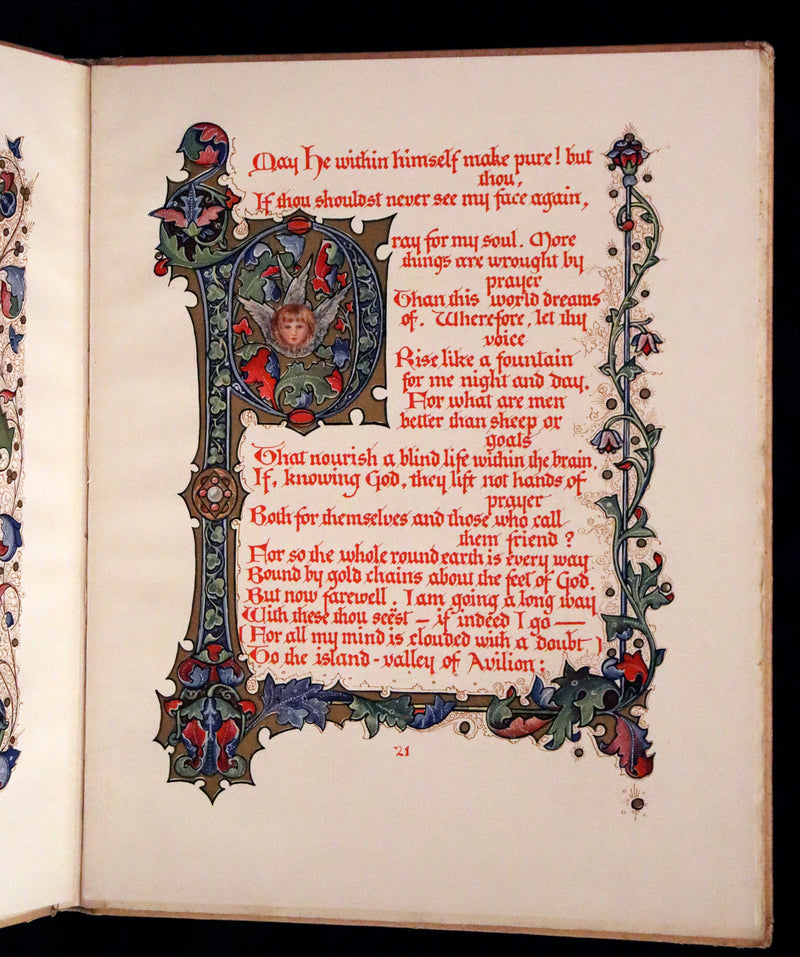 May He within himself make pure! but
thou,
If thou shouldst never see my face again,
Pray for my soul. More
things are wrought by
prayer
Than this world dreams
of. Wherefore, let thy
voice
Rise like a fountain
for me night and day.
For what are men
better than sheep or
goats
That nourish a blind life within the brain,
If, knowing God, they lift not hands of
prayer
Both for themselves and those who call
them friend?
For so the whole round earth is every way
Bound by gold chains about the feet of God.
But now farewell. I am going a long way
With these thou seëst — if indeed I go —
(For all my mind is clouded with a doubt)
To the island-valley of Avilion;
21